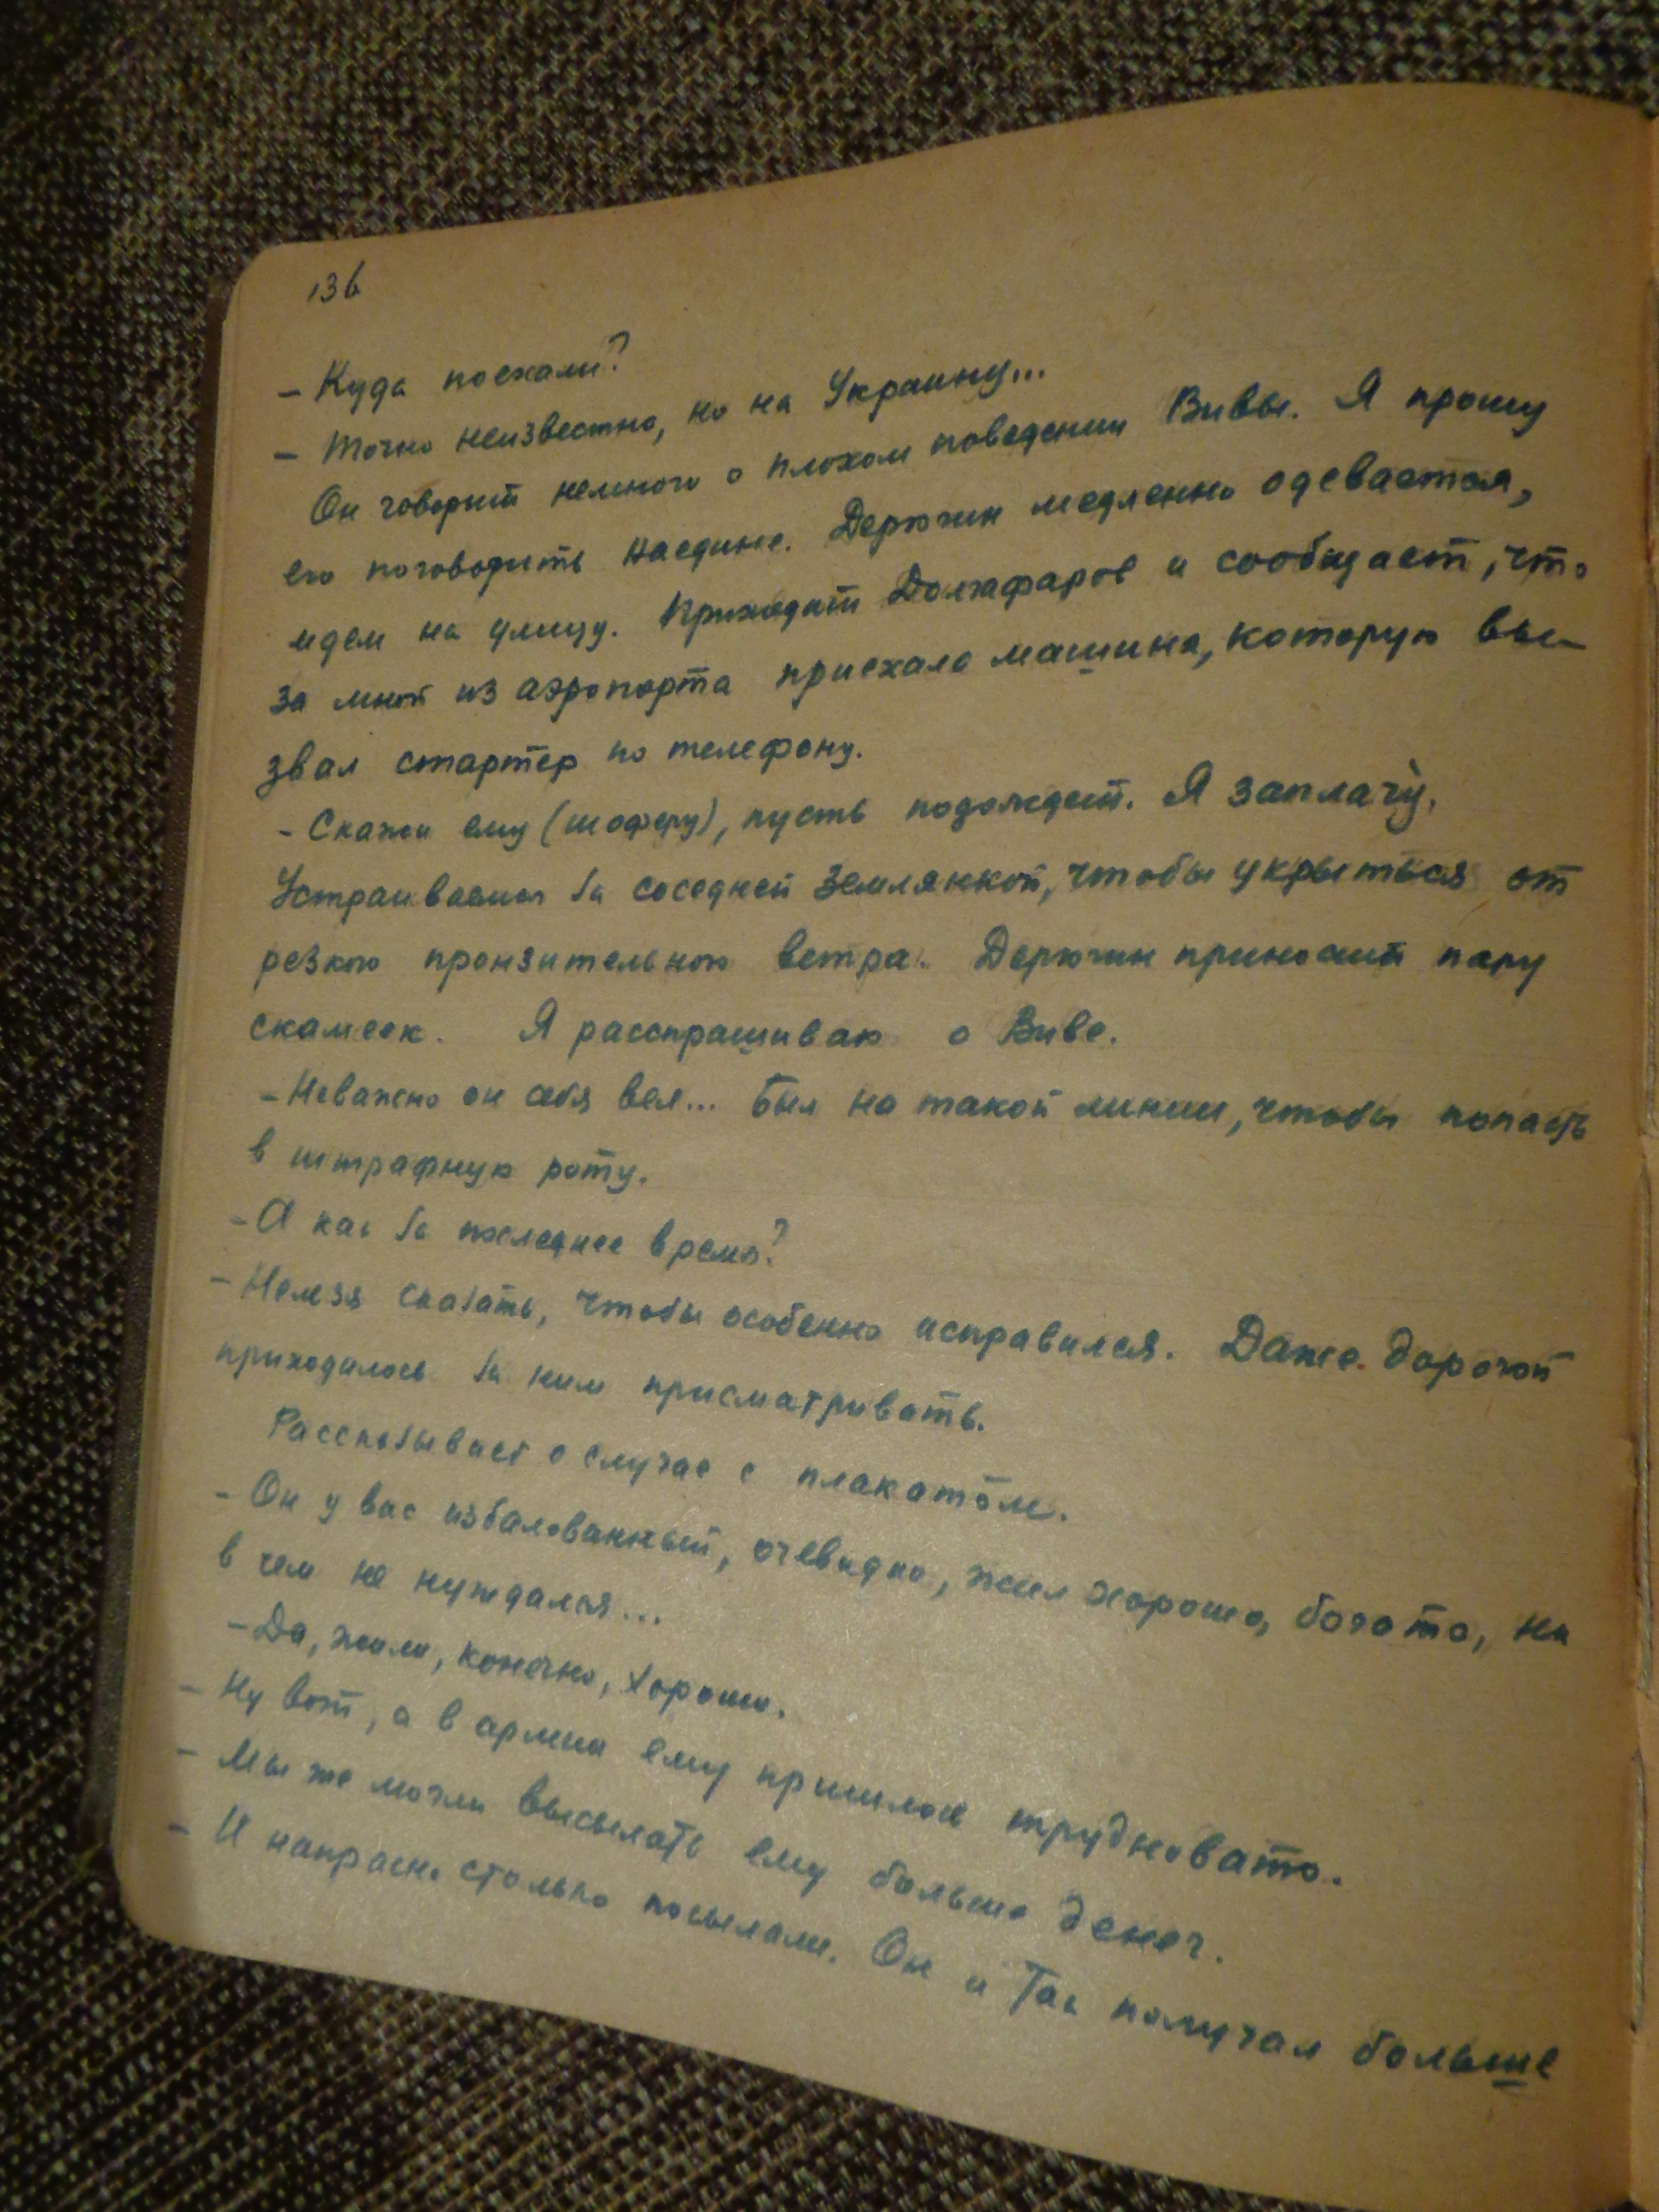 136
– Куда поехали?
– Точно неизвестно, но на Украину...
Он говорит немного о плохом поведении Вивы. Я прошу
его поговорить наедине. Дерюгин медленно одевается,
идем на улицу. Приходит Должфаров и сообщает, что
за мной из аэропорта приехала машина, которую вы-
звал стартер по телефону.
– Скажи ему (шоферу), пусть подождет. Я заплачу.
Устраиваемся за соседней землянкой, чтобы укрыться от
резкого пронзительного ветра. Дерюгин приносит пару
скамеек. Я расспрашиваю о Виве.
– Неважно он себя вел... Был на такой линии, чтобы попасть
в штрафную роту.
– А как за последнее время?
– Нельзя сказать, чтобы особенно исправился. Даже дорогой
приходилось за ним присматривать.
Рассказывает о случае с плакатом.
– Он у вас избалованный, очевидно, жил хорошо, богато, ни
в чем не нуждался...
– Да, жили, конечно, хорошо.
– Ну вот, а в армии ему пришлось трудновато.
– Мы же могли высылать ему больше денег.
– И напрасно столько посылали. Он и так получал больше